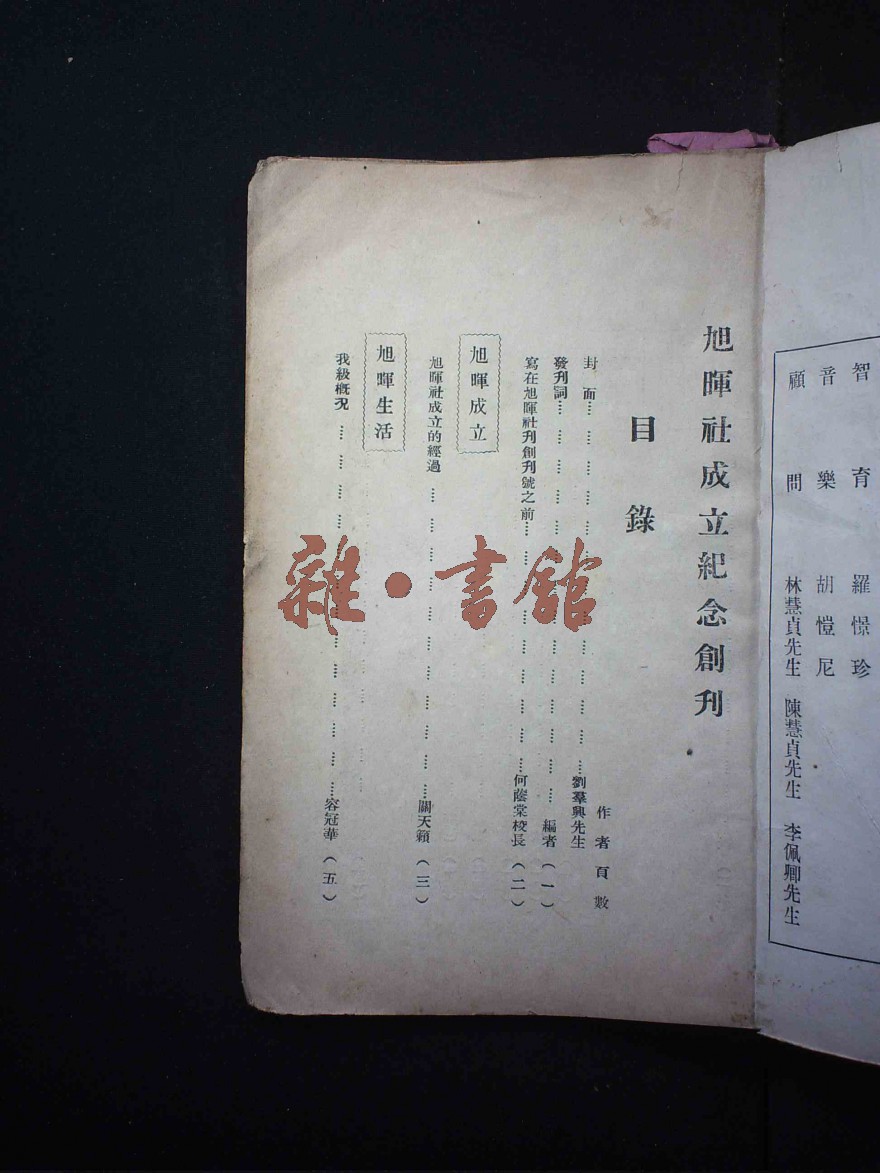 智　育　羅憬珍
音　樂　胡愷尼
顧　問　林慧貞先生　陳慧貞先生　李佩卿先生
旭暉社成立紀念創刊
目錄
作者　頁數
封面……………………劉羣興先生
發刊詞……………………編者（一）
寫在旭暉社刊創刊號之前……………………何蔭棠校長（二）
旭暉成立
旭暉社成立的經過……………………關天籟（三）
旭暉生活
我級概況……………………容冠華（五）
雜·書館